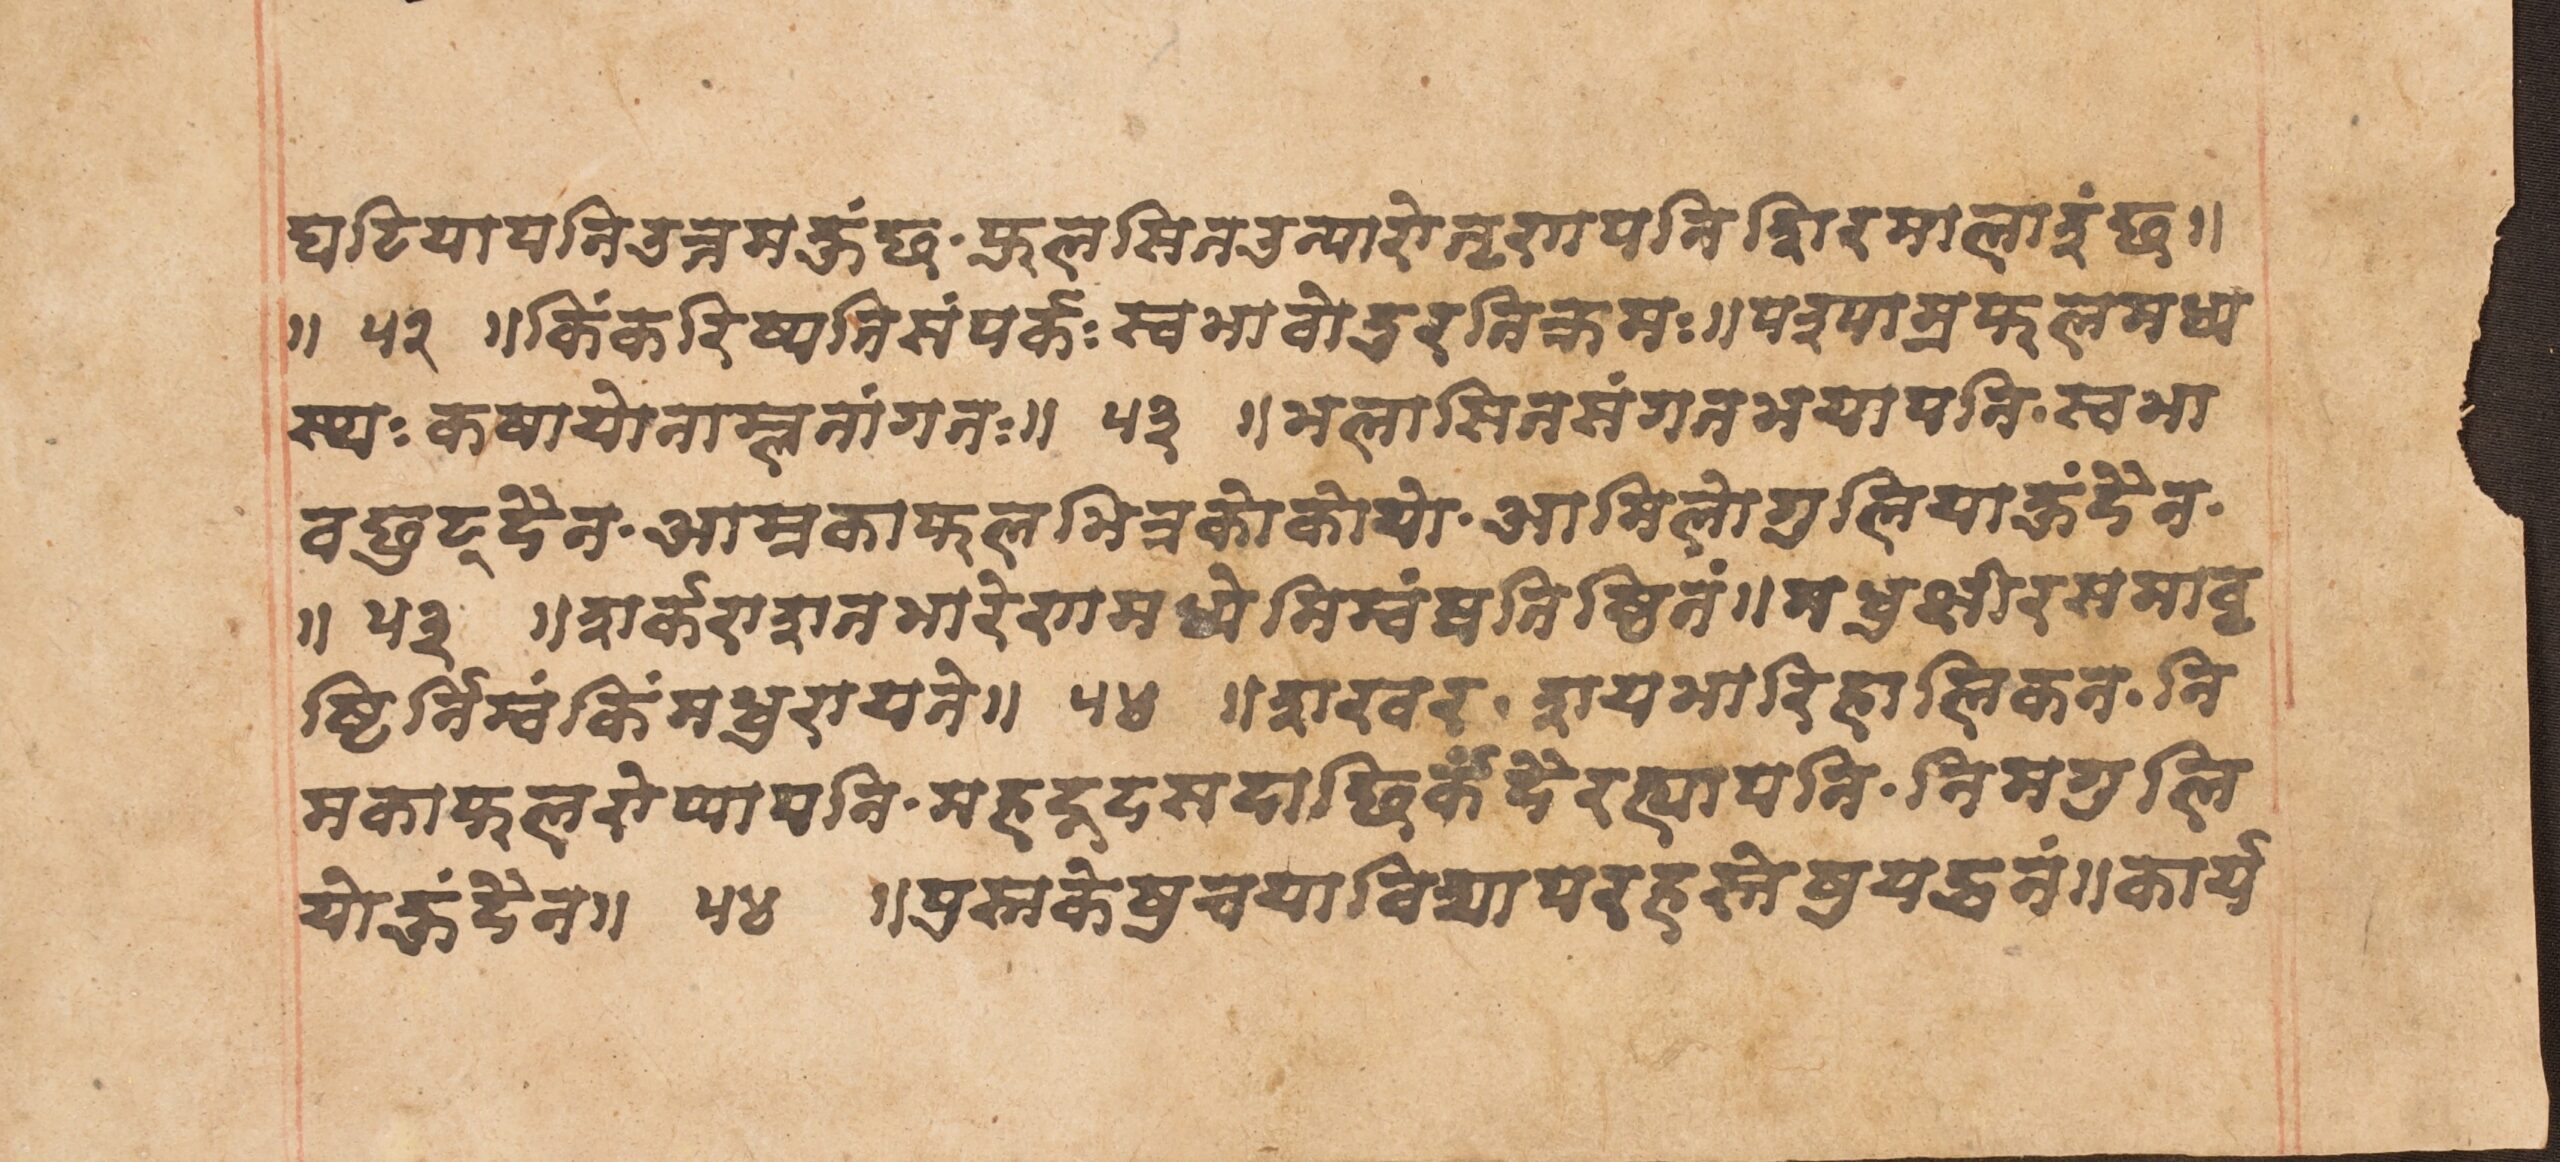 घटियापनिउत्तमहुंछ· फुलसितउत्पारोतृणपनिशिरमालाइंछ॥
॥ ५२ ॥किंकरिष्यतिसंपर्कः स्वभावोदुरतिक्रमः॥पश्याम्रफलमध्य
स्थः कषायोनाम्लतांगतः॥ ५३ ॥भलासितसंगतभयापनि· स्वभा
वछुट्दैन· आम्रकाफलभित्रकोकोयो· आमिलोगुलियाहुंदैन·
॥ ५३ ॥शर्कराशतभारेणमध्येनिम्वंप्रतिष्ठितं॥मधुक्षीरसमावृ
ष्टिर्निम्वंकिंमधुरायते॥ ५४ ॥शखर· शयभारिहालिकन· नि
मकाफलरोप्यापनि· महदुदसदाछिर्कंदैरह्यापनि· निमगुलि
योहुंदैन॥ ५४ ॥पुस्तकेषुचयाविद्यापरहस्तेषुयद्धनं॥कार्य